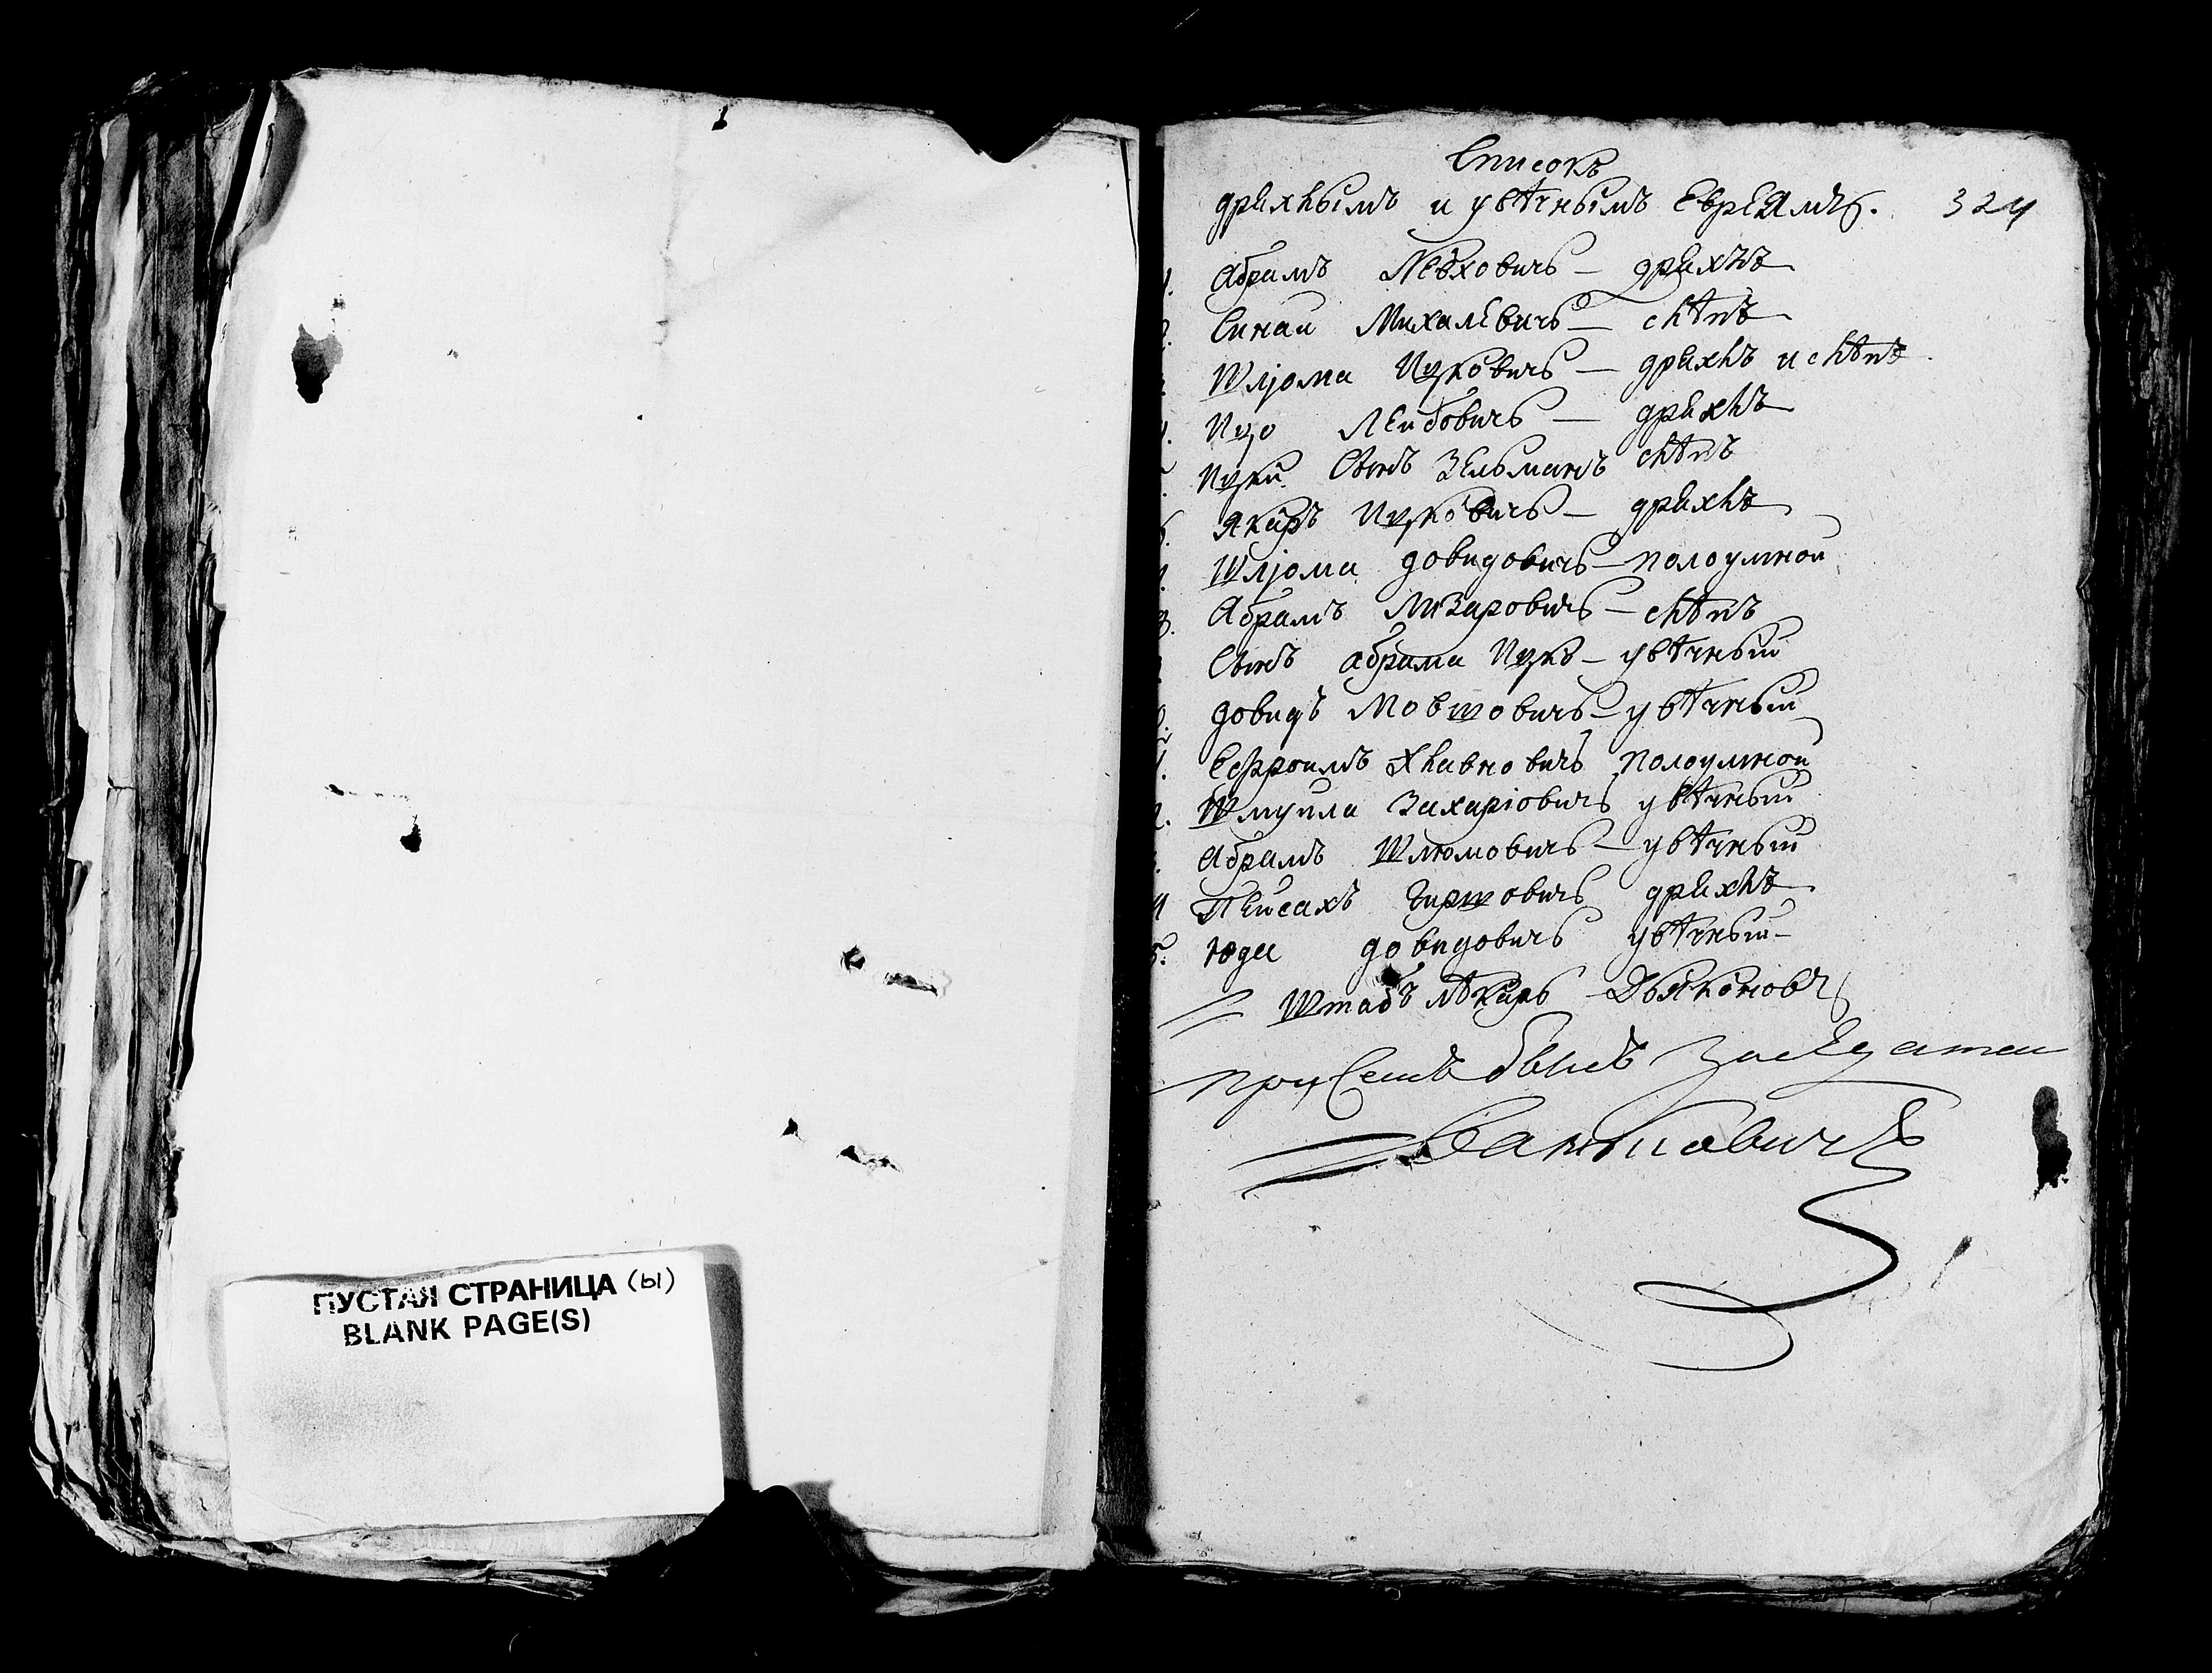 ПУСТАЯ СТРАНИЦА (ы)
BLANK PAGE(S)
Списокъ
дряхлымъ и увѣчнымъ Евреямъ. 324
Абрамъ Лейховичъ — дряхлъ
Синаи Михалевичъ — слѣпъ
Шліома Ицковичъ — дряхлъ и слѣпъ
Ицо Леибовичъ — дряхлъ
Ицки Сынъ Зельманъ слѣпъ
6. Якаръ Ицковичъ — дряхлъ
Шліома Довидовичъ — полоумнои
8. Абрамъ Лизаровичъ — слѣпъ
Сынъ Абрама Ицкъ — увѣчныи
Довидъ Мовшовичъ — увѣчныи
Ефроимъ Хлавновичъ полоумнои
Шмуила Захаріовичъ увѣчныи
Абрамъ Шлюмовичъ — увѣчныи
Пейсахъ Гиршовичъ дряхлъ
5. Юда Довидовичъ увѣчныи
Штабъ лѣкарь Дьяконовъ
При семъ былъ Заседатель